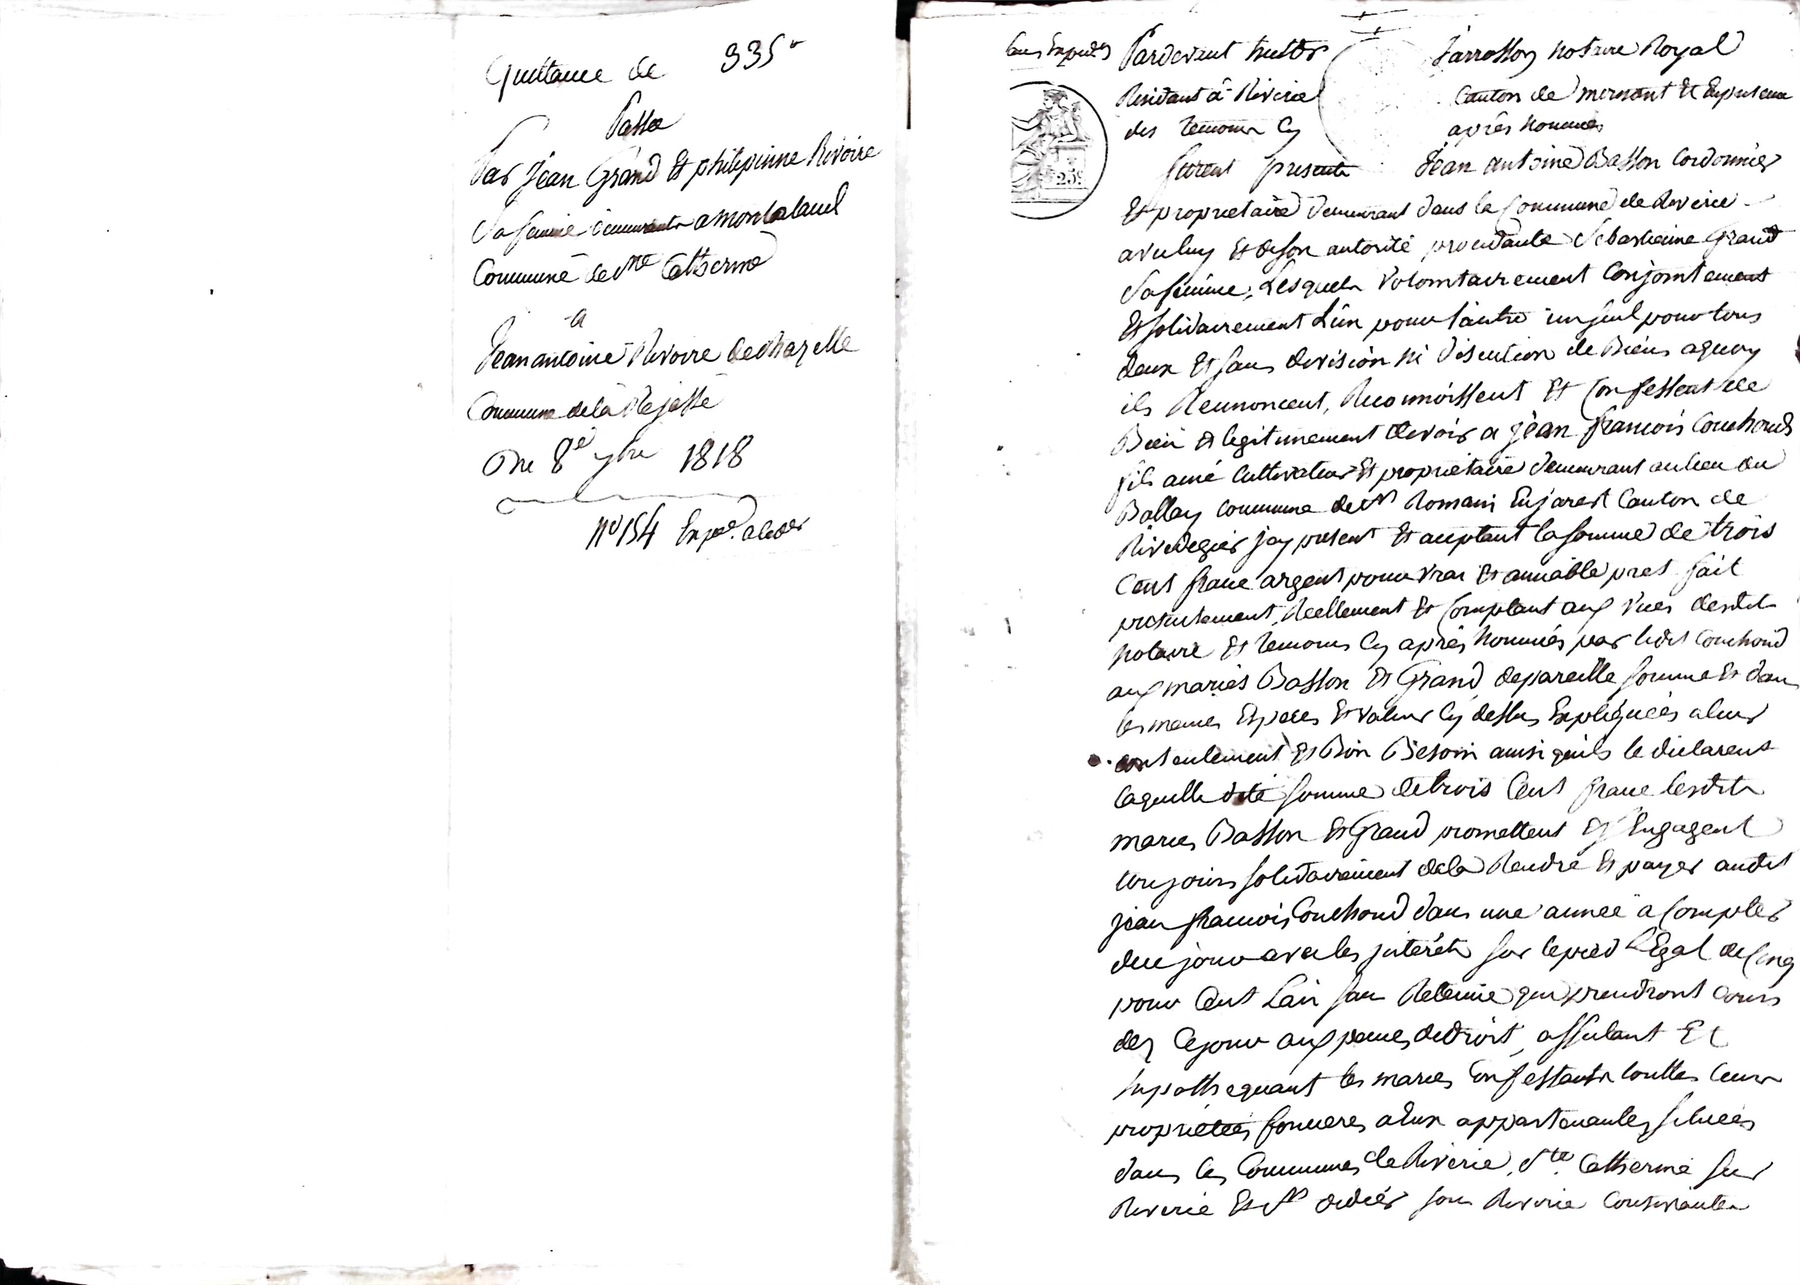 Quittance de 335 f
Passée
Par Jean Grand Et philipinne Rivoire
Sa femme demeurants a montaland
Commune de Ste Catherine
A
Jean antoine Rivoire de chazelle
Commune de la Rajasse
Du 8e 7bre 1818
No 154 Exped.
Pardevant Jarrosson notaire Royal
Residant à Riverie Canton de mornant Et En presence
des temoins Cy après nommés
furent presents Jean antoine Basson Cordonnier
Et proprietaire demeurant dans la Commune de Riverie
avec luy Et de son autorité procedante Sebastienne Grand
Sa femme, Lesquels volontairement Conjointement
Et solidairement L'un pour l'autre un seul pour tous
deux Et sans division ni discution de Biens aquoy
ils Rennoncent, Reconnoissent Et Confessent de
Bien Et legitimement devoir a jean françois Couchoud
fils ainé Cultivateur Et proprietaire demeurant au lieu du
Ballay commune de St Romain En jarest Canton de
Rivedegier jcy present Et acceptant la somme de trois
Cent franc argent pour vrai Et amiable pret fait
presentement, Reellement Et Comptant aux vues desdits
notaire Et temoins Cy après nommés par ledit Couchoud
aux mariés Basson Et Grand de pareille somme Et dans
les memes Especes Et valeur Cy dessus Expliquées a leur
contentement Et Bon Besoin ainsi qu'ils le declarent
laquelle dite somme de trois Cent franc lesdits
mariés Basson Et Grand promettent Et s'Engagent
toujours solidairement de la Rendre Et payer audit
jean françois Couchoud dans une année a Compter
de ce jour avec les jnterêts sur le pied légal de Cinq
pour Cent L'an sans Retenue qui prendront cours
dez Ce jour aux peines de droit, assulant Et
hypothequant les mariés Confessants touttes leurs
propriétées foncieres a Eux appartenantes situées
dans les Communes de Riverie, Ste Catherine sur
Riverie Et St didier sous Riverie Consistantes